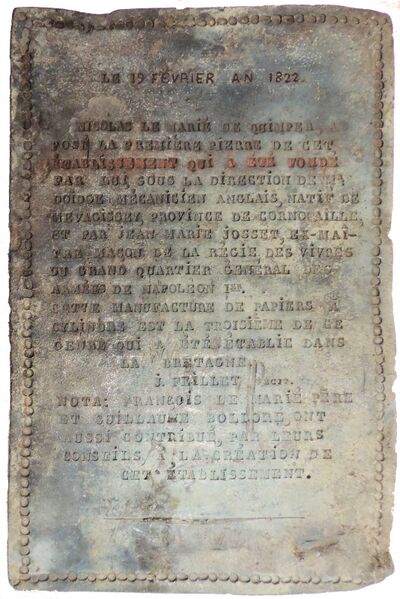 LE 19 FÉVRIER AN 1822.
NICOLAS LE MARIÉ DE QUIMPER, A
POSÉ LA PREMIÈRE PIERRE DE CET
ÉTABLISSEMENT QUI A ÉTÉ FONDÉ
PAR LUI, SOUS LA DIRECTION DE Mr
DOIDGE MÉCANICIEN ANGLAIS, NATIF DE
MEVAGISSEY, PROVINCE DE CORNOUAILLE,
ET PAR JEAN MARIE JOSSET, EX-MAÎ-
TRE MAÇON DE LA RÉGIE, DES VIVRES
DU GRAND QUARTIER GÉNÉRAL DES
ARMÉES DE NAPOLEON Ier.
CETTE MANUFACTURE DE PAPIERS A
CYLINDRE EST LA TROISIÈME DE CE
GENRE QUI A ÉTÉ ÉTABLIE DANS
LA BRETAGNE
J. FEILLET,
NOTA: FRANÇOIS LE MARIÉ PÈRE
ET GUILLAUME BOLLORÉ, ONT
AUSSI CONTRIBUÉ, PAR LEURS
CONSEILS, À LA CRÉATION DE
CET ÉTABLISSEMENT.